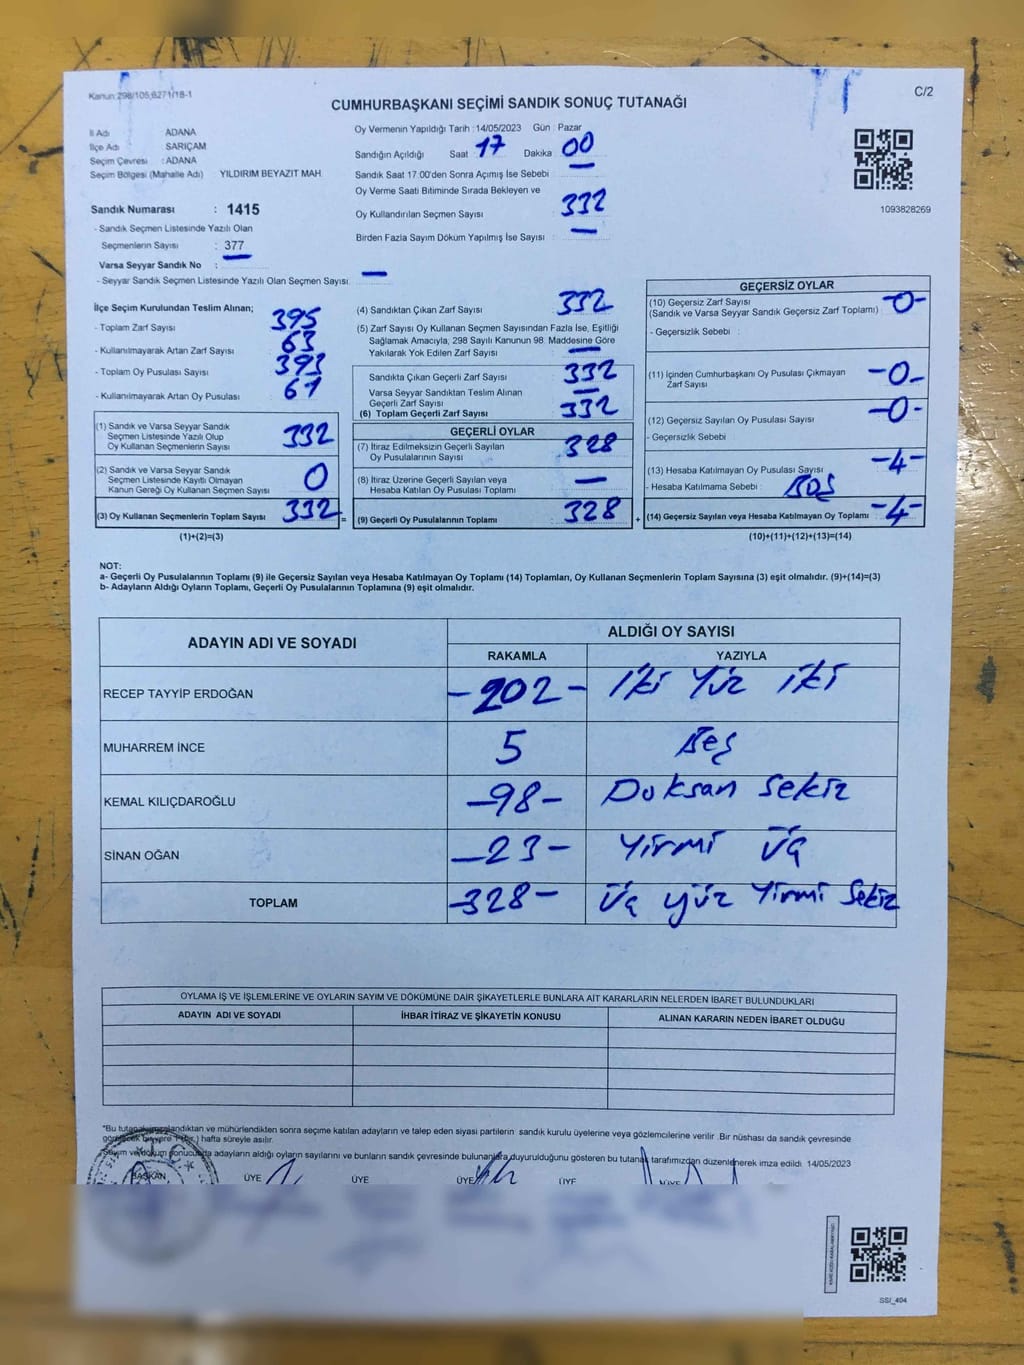 Kanun:298/105,6271/18-1
C/2
CUMHURBAŞKANI SEÇİMİ SANDIK SONUÇ TUTANAĞI
İl Adı ADANA
İlçe Adı SARIÇAM
Seçim Çevresi : ADANA
Seçim Bölgesi (Mahalle Adı) YILDIRIM BEYAZIT MAH.
Sandık Numarası : 1415
- Sandık Seçmen Listesinde Yazılı Olan
Seçmenlerin Sayısı : 377
Varsa Seyyar Sandık No :
- Seyyar Sandık Seçmen Listesinde Yazılı Olan Seçmen Sayısı. —
Oy Vermenin Yapıldığı Tarih : 14/05/2023 Gün : Pazar
Sandığın Açıldığı Saat : 17 Dakika : 00
Sandık Saat 17.00'den Sonra Açımış İse Sebebi : —
Oy Verme Saati Bitiminde Sırada Bekleyen ve
Oy Kullandırılan Seçmen Sayısı : 332
Birden Fazla Sayım Döküm Yapılmış İse Sayısı : —
1093828269
İlçe Seçim Kurulundan Teslim Alınan;
- Toplam Zarf Sayısı 395
- Kullanılmayarak Artan Zarf Sayısı 63
- Toplam Oy Pusulası Sayısı 393
- Kullanılmayarak Artan Oy Pusulası 61
(1) Sandık ve Varsa Seyyar Sandık
Seçmen Listesinde Yazılı Olup
Oy Kullanan Seçmenlerin Sayısı 332
(2) Sandık ve Varsa Seyyar Sandık
Seçmen Listesinde Kayıtlı Olmayan
Kanun Gereği Oy Kullanan Seçmen Sayısı 0
(3) Oy Kullanan Seçmenlerin Toplam Sayısı 332 =
(1)+(2)=(3)
(4) Sandıktan Çıkan Zarf Sayısı 332
(5) Zarf Sayısı Oy Kullanan Seçmen Sayısından Fazla İse, Eşitliği
Sağlamak Amacıyla, 298 Sayılı Kanunun 98. Maddesine Göre
Yakılarak Yok Edilen Zarf Sayısı —
Sandıkta Çıkan Geçerli Zarf Sayısı 332
Varsa Seyyar Sandıktan Teslim Alınan
Geçerli Zarf Sayısı —
(6) Toplam Geçerli Zarf Sayısı 332
GEÇERLİ OYLAR
(7) İtiraz Edilmeksizin Geçerli Sayılan
Oy Pusulalarının Sayısı 328
(8) İtiraz Üzerine Geçerli Sayılan veya
Hesaba Katılan Oy Pusulası Toplamı —
(9) Geçerli Oy Pusulalarının Toplamı 328 +
GEÇERSİZ OYLAR
(10) Geçersiz Zarf Sayısı
(Sandık ve Varsa Seyyar Sandık Geçersiz Zarf Toplamı) -0-
- Geçersizlik Sebebi :
(11) İçinden Cumhurbaşkanı Oy Pusulası Çıkmayan
Zarf Sayısı -0-
(12) Geçersiz Sayılan Oy Pusulası Sayısı -0-
- Geçersizlik Sebebi :
(13) Hesaba Katılmayan Oy Pusulası Sayısı -4-
- Hesaba Katılmama Sebebi : BOŞ
(14) Geçersiz Sayılan veya Hesaba Katılmayan Oy Toplamı -4-
(10)+(11)+(12)+(13)=(14)
NOT:
a- Geçerli Oy Pusulalarının Toplamı (9) ile Geçersiz Sayılan veya Hesaba Katılmayan Oy Toplamı (14) Toplamları, Oy Kullanan Seçmenlerin Toplam Sayısına (3) eşit olmalıdır. (9)+(14)=(3)
b- Adayların Aldığı Oyların Toplamı, Geçerli Oy Pusulalarının Toplamına (9) eşit olmalıdır.
ADAYIN ADI VE SOYADI ALDIĞI OY SAYISI
RAKAMLA YAZIYLA
RECEP TAYYİP ERDOĞAN -202- İki Yüz iki
MUHARREM İNCE 5 Beş
KEMAL KILIÇDAROĞLU -98- Doksan Sekiz
SİNAN OĞAN -23- Yirmi Üç
TOPLAM -328- Üç yüz Yirmi Sekiz
OYLAMA İŞ VE İŞLEMLERİNE VE OYLARIN SAYIM VE DÖKÜMÜNE DAİR ŞİKAYETLERLE BUNLARA AİT KARARLARIN NELERDEN İBARET BULUNDUKLARI
ADAYIN ADI VE SOYADI İHBAR İTİRAZ VE ŞİKAYETİN KONUSU ALINAN KARARIN NEDEN İBARET OLDUĞU
"Bu tutanak ımzalandıktan ve mühürlendikten sonra seçime katılan adayların ve talep eden siyasi partilerin sandık kurulu üyelerine veya gözlemcilerine verilir .Bir nüshası da sandık çevresinde
bir yere hafta süreyle asılır.
Sayım ve döküm sonucusda adayların aldığı oyların sayılarını ve bunların sandık çevresinde bulunanlara duyurulduğunu gösteren bu tutanak tarafımızdan düzenlenerek imza edildi. 14/05/2023
BAŞKAN ÜYE ÜYE ÜYE ÜYE ÜYE
SSI_404